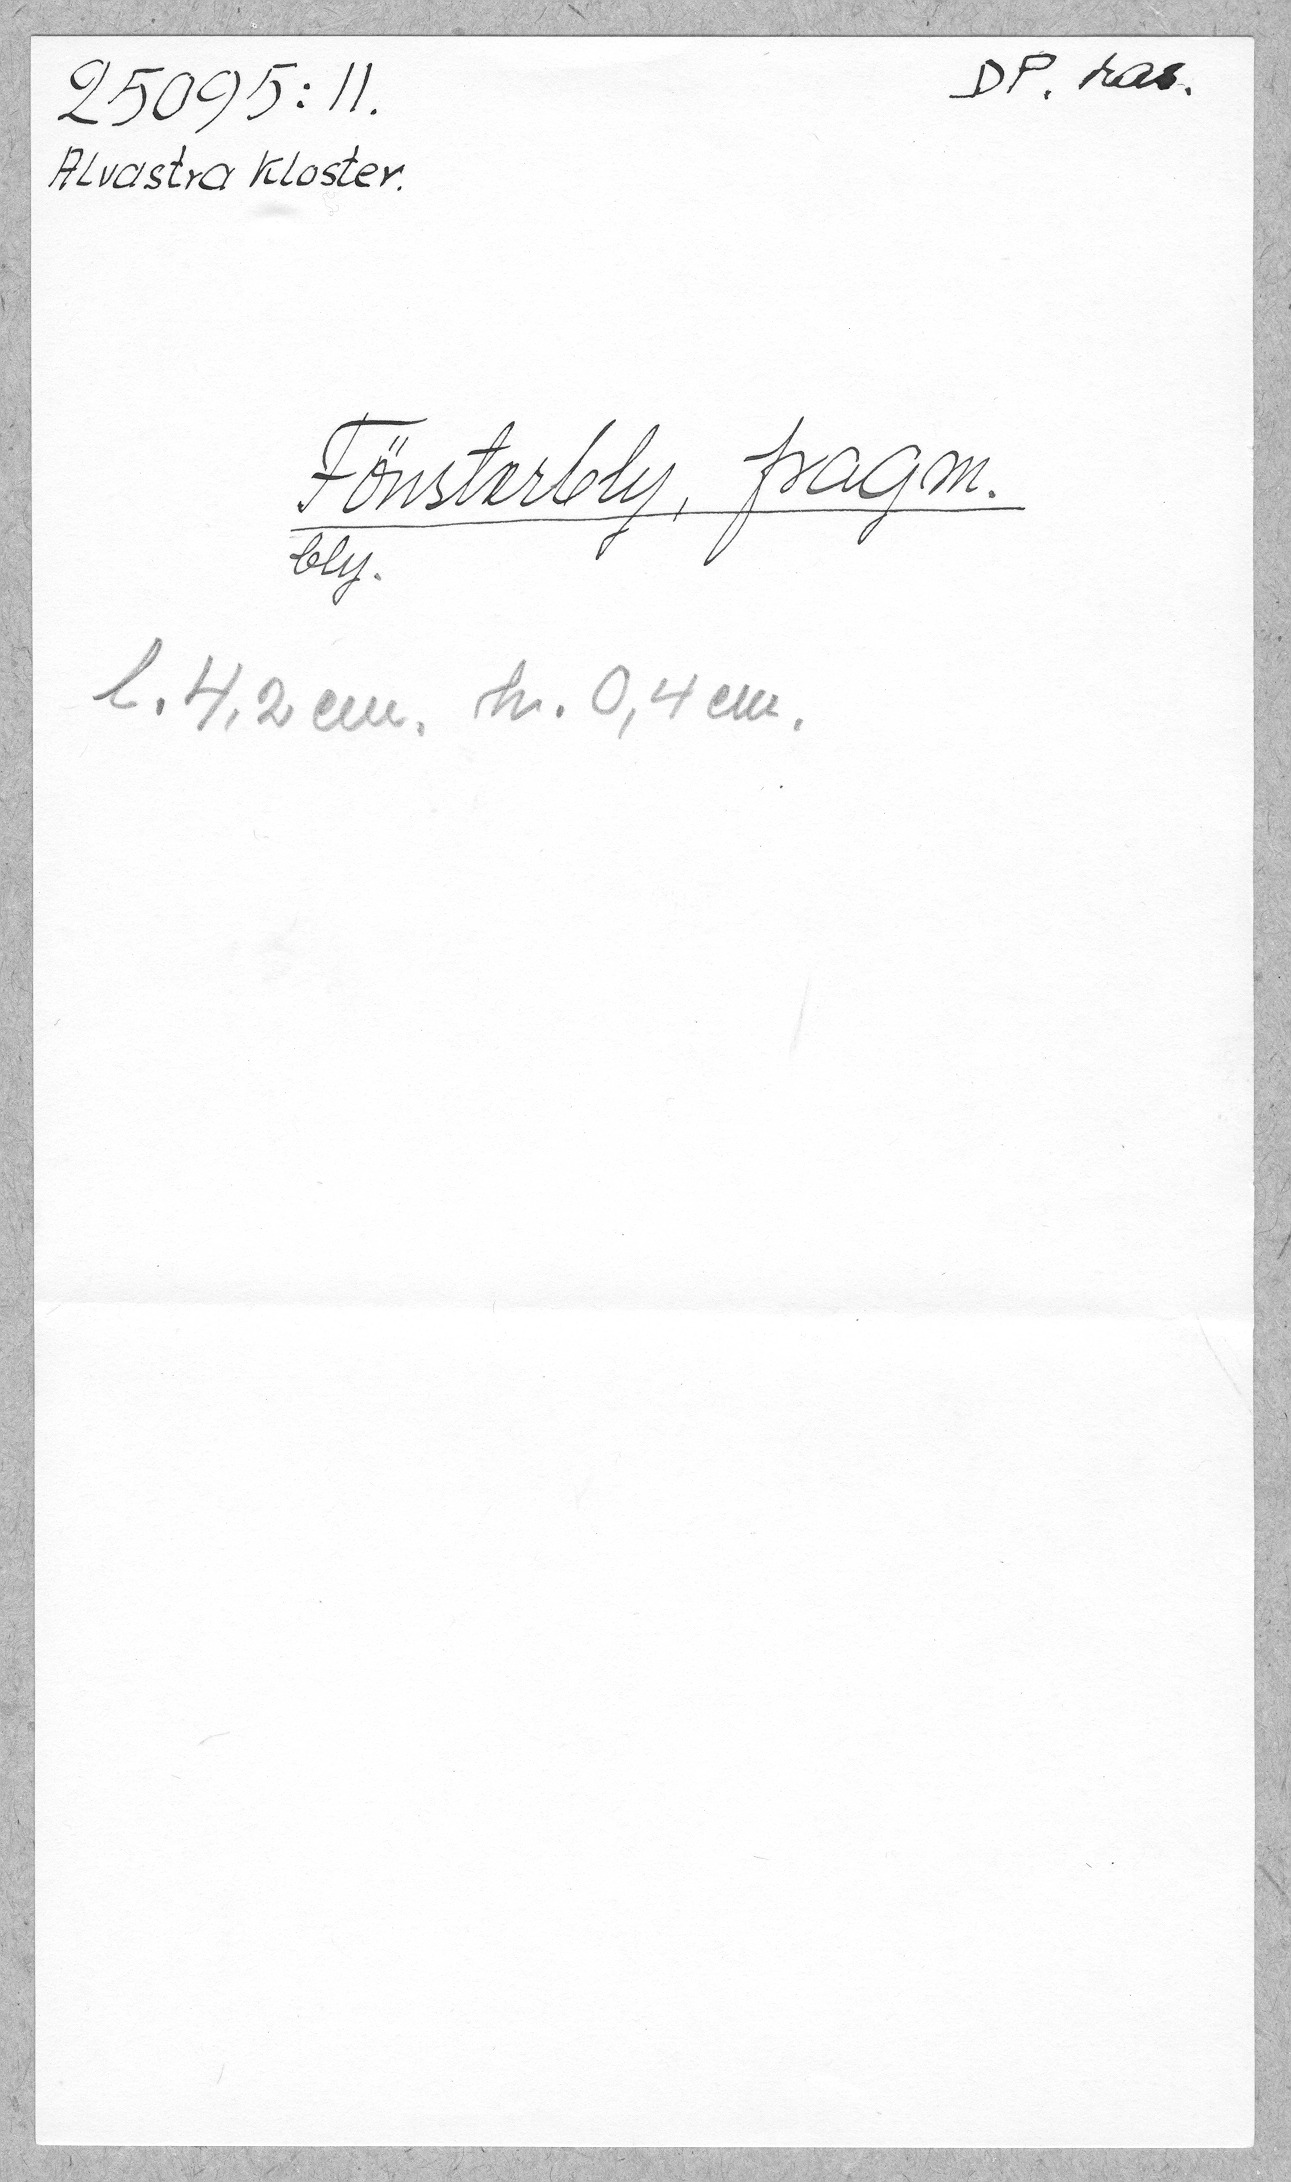 25095:11.
DP. ras.
Alvastra Kloster.
Fönsterbly, fragm.
bly.
l. 4,2 cm. br. 0,4 cm.